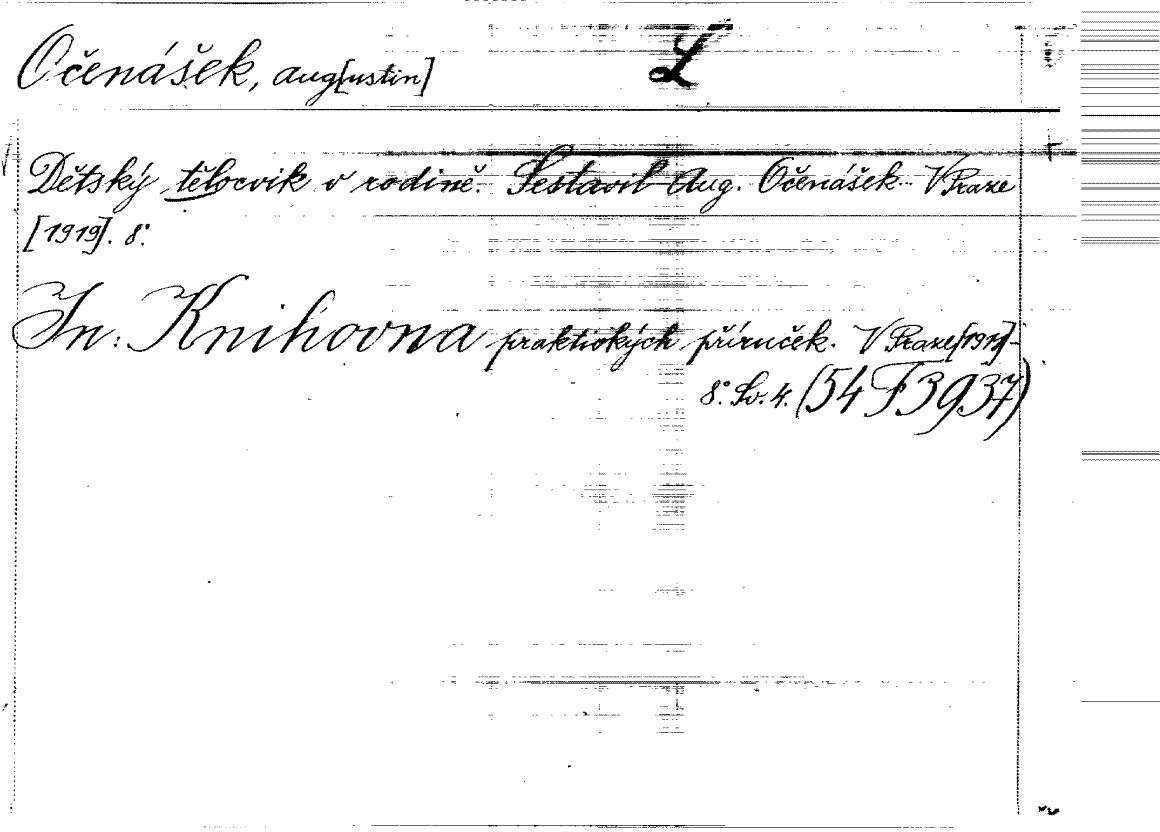 Očenášek, Aug[ustin] L
Dětský tělocvik v rodině. Sestavil Aug. Očenášek. V Praze
[1919]. 8°.
In: Knihovna praktických příruček. V Praze
8°. Sv. 4. (54 F 3937)